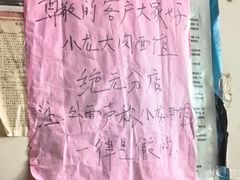 尊敬的客户大家好
小龙大肉面馆
绝无分店
注:外面声称小龙面馆
一律是假的.